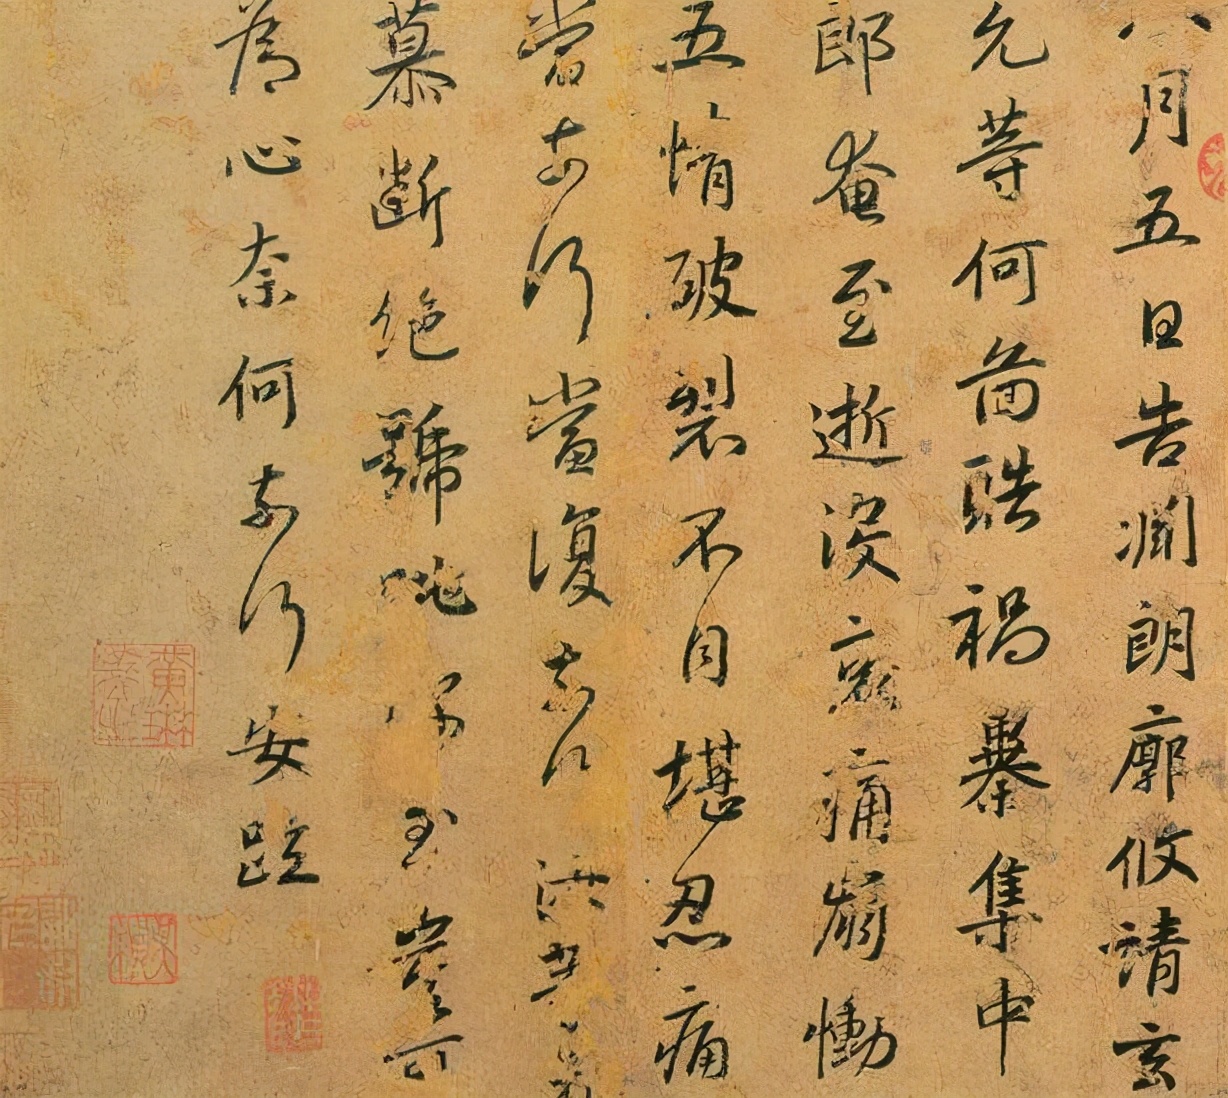 八月五日告淵朗廓攸靖玄
允等何圖酷禍暴集中
郎奄至逝沒哀痛崩慟
五情破裂不自堪忍痛
當奈何當復奈何汝等哀
慕斷絕號咷深至豈可
為心奈何奈何安疏
黃琳美之